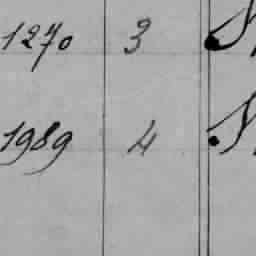 1270 3
1989 4